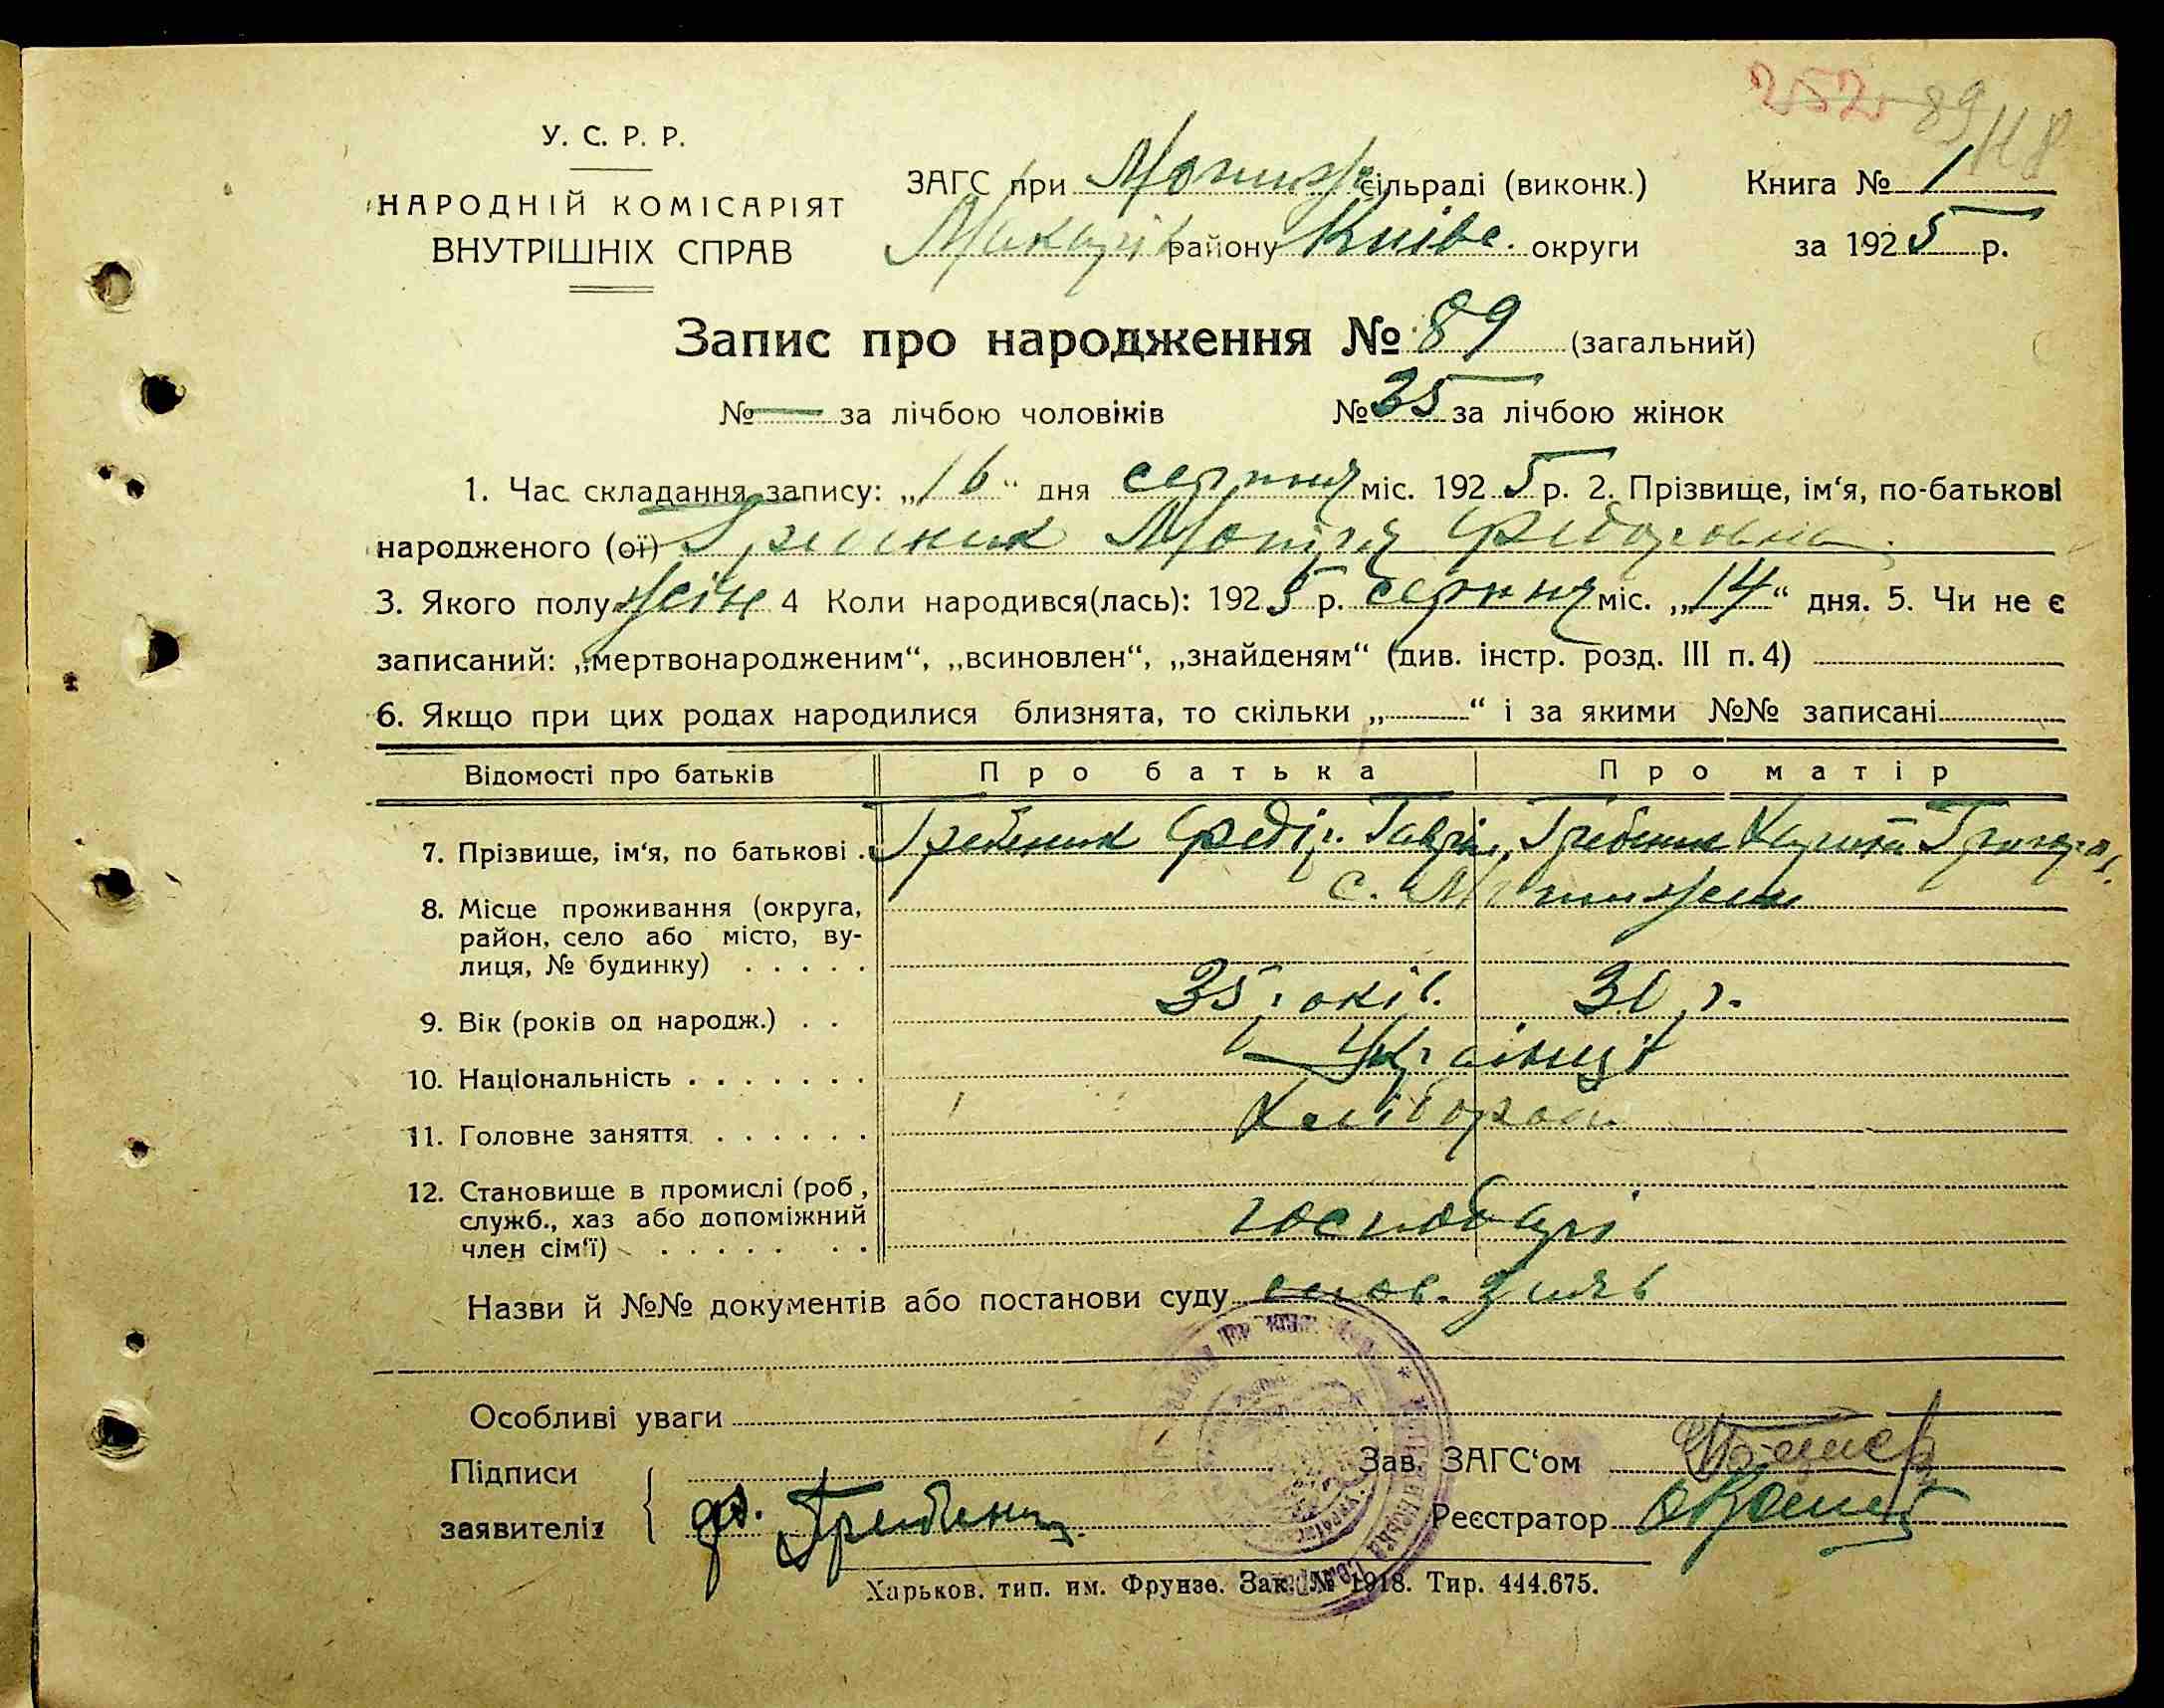 252 89 118
У. С. Р. Р.
НАРОДНІЙ КОМІСАРІЯТ
ВНУТРІШНІХ СПРАВ
ЗАГС при Мотиж. сільраді (виконк.)
Макарів району Київс. округи
Книга № 1
за 1925 р.
Запис про народження № 89 (загальний)
№ — за лічбою чоловіків № 35 за лічбою жінок
1. Час складання запису: „16“ дня серпня міс. 1925 р. 2. Прізвище, ім‘я, по-батькові
народженого (ої) Гребиник Мотря Федоровна.
3. Якого полу жін 4 Коли народився(лась): 1925 р. серпня міс. „14“ дня. 5. Чи не є
записаний: „мертвонародженим“, „всиновлен“, „знайденям“ (див. інстр. розд. III п. 4)
6. Якщо при цих родах народилися близнята, то скільки „ “ і за якими №№ записані
Відомості про батьків Про батька Про матір
7. Прізвище, ім‘я, по батькові . Гребеник Федір. Гаврил. Гребеник Харитя Григоров.
8. Місце проживання (округа, с. Мотижин
район, село або місто, ву-
лиця, № будинку) . . . . .
9. Вік (років од народж.) . . 35 років. 30 р.
10. Національність . . . . . . . Українці
11. Головне заняття . . . . . . Хлібороби
12. Становище в промислі (роб,
служб., хаз або допоміжний господарі
член сім‘ї) . . . . . . .
Назви й №№ документів або постанови суду слов. заяв
Особливі уваги
Підписи Зав. ЗАГС‘ом
заявителів Ф. Гребеник Реєстратор
Харьков. тип. им. Фрунзе. Зак. № 1918. Тир. 444.675.